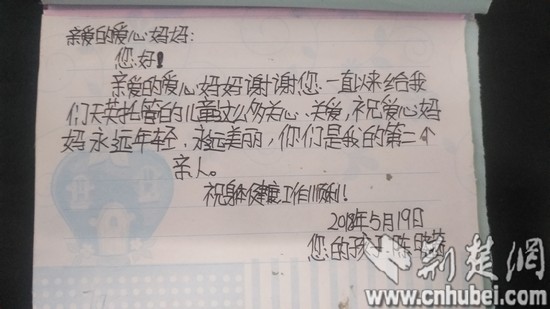 亲爱的爱心妈妈:
您好!
亲爱的爱心妈妈谢谢您一直以来给我
们天英托管的儿童这么多关心、关爱,祝爱心妈
妈永远年轻,永远美丽,你们是我的第二个
亲人。
祝身体健康工作顺利!
2018年5月19日
您的孩子陈
荆楚網
www.cnhubei.com